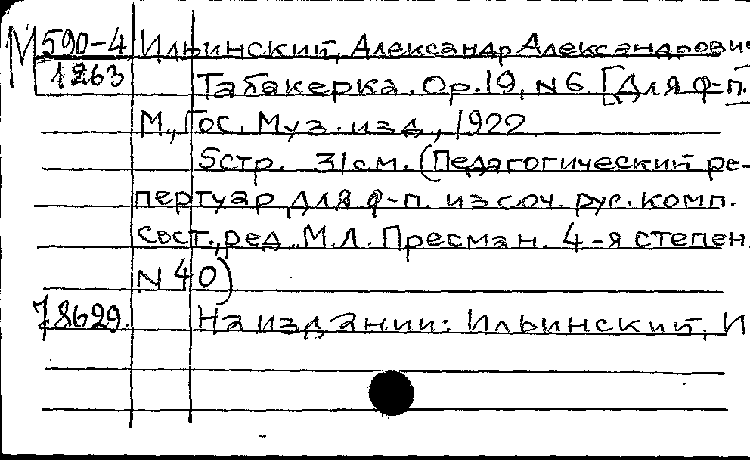 М 590-4 Ильинский, Александр Александрович
1263 Табакерка. Ор. 19, N 6. [Для ф-п.]
М., Гос. Муз. изд., 1922.
5 стр. 31 см. (Педагогический ре-
пертуар для ф-п. из соч. рус. комп.
Сост., ред. М.Л. Пресман. 4-я степен.
N 40)
78629. На издании: Ильинский, И